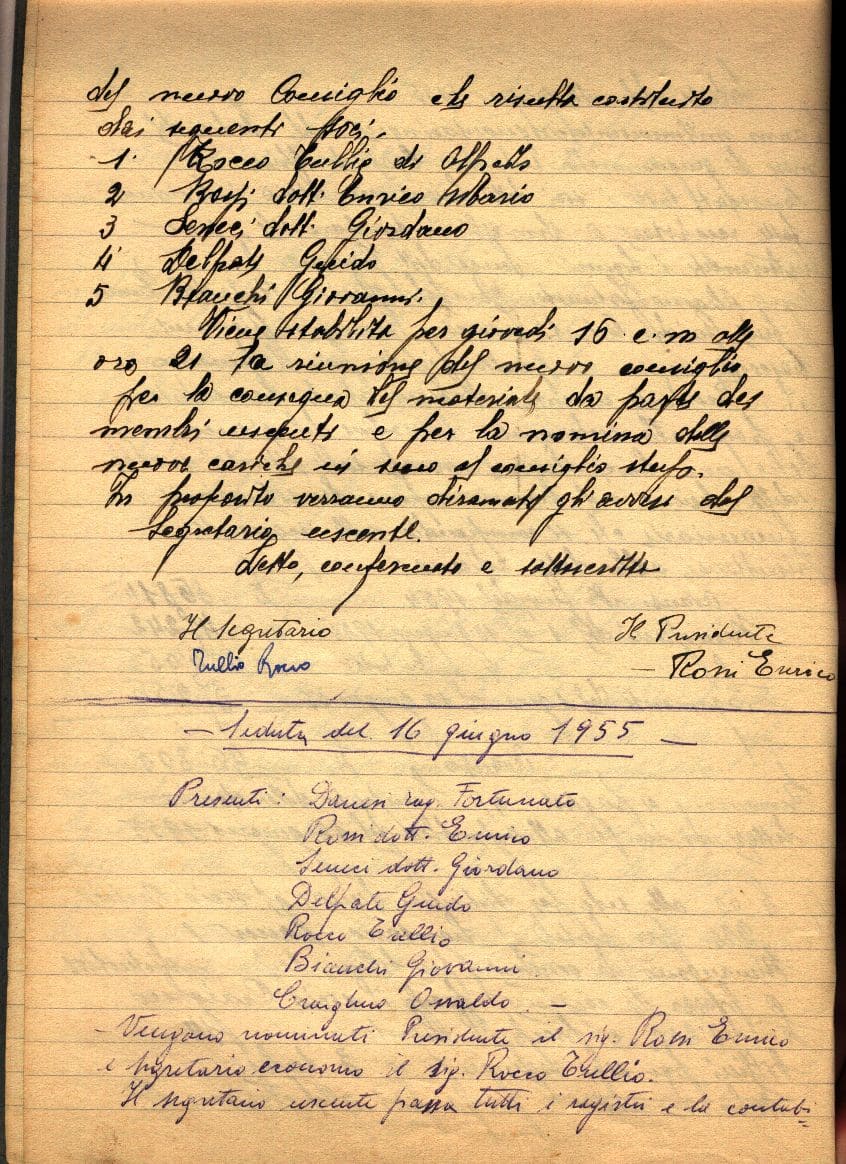 del nuovo Consiglio che risulta costituito
dai seguenti soci.
1. Rocco Tullio di Alfredo
2 Rossi dott. Enrico Mario
3 Seneci dott. Giordano
4 Delpate Guido
5 Bianchi Giovanni.
Viene stabilita per giovedì 16 c. m alle
ore 21 la riunione del nuovo consiglio
per la consegna del materiale da parte dei
membri uscenti e per la nomina delle
nuove cariche in seno al consiglio stesso.
In proposito verranno diramati gli avvisi dal
segretario uscente.
Letto, confermato e sottoscritto
Il segretario
Il Presidente
Tullio Rocco
Rossi Enrico
- Seduta del 16 giugno 1955 -
Presenti: Danesi rag. Fortunato
Rossi dott. Enrico
Seneci dott. Giordano
Delpate Guido
Rocco Tullio
Bianchi Giovanni
Osvaldo. -
- Vengono nominati Presidente il sig. Rossi Enrico
e segretario economo il sig. Rocco Tullio.
Il segretario uscente passa tutti i registri e la contabi=